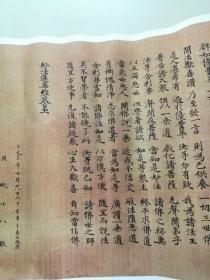 聞法歡喜讚 乃至發一言 則為已供養 一切三世佛
是人甚希有 過於優曇華 汝等勿有疑 我為諸法王
普告諸大眾 但以一乘道 教化諸菩薩 無聲聞弟子
汝等舍利弗 聲聞及菩薩 當知是妙法 諸佛之秘要
以五濁惡世 但樂著諸欲 如是等眾生 終不求佛道
當來世惡人 聞佛說一乘 迷惑不信受 破法墮惡道
有慚愧清淨 志求佛道者 當為如是等 廣讚一乘道
舍利弗當知 諸佛法如是 以萬億方便 隨宜而說法
其不習學者 不能曉了此 汝等既已知 諸佛世之師
隨宜方便事 無復諸疑惑 心生大歡喜 自知當作佛
妙法蓮華經卷第一